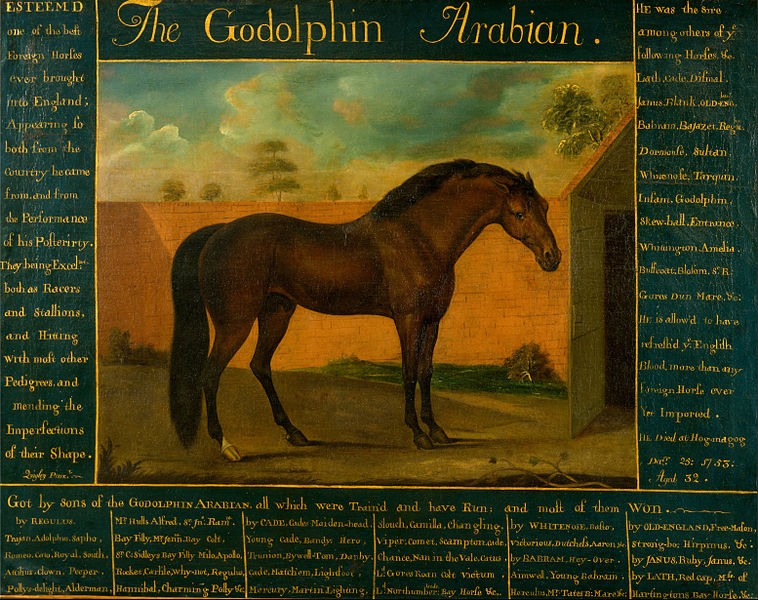 The Godolphin Arabian.
ESTEEM'D
one of the best
Foreign Horses
ever brought
into England;
Appearing so
both from the
Country he came
from, and from
the Performance
of his Posterity.
They being Excel.nt
both as Racers
and Stallions,
and Hitting
with most other
Pedigrees, and
mending the
Imperfections
of their Shape.
HE was the Sire
among others of ye
following Horses &c.
Lath, Cade, Dismal,
Janus, Blank, OLD-ENG.
Babram, Bajazet, Regs.
Dormouse, Sultan,
Whitenose, Tarquin,
Infant, Godolphin,
Skew-ball, Entrance,
Whitington, Amelia,
Buffcoat, Blosom, Sr. R.
Gores Dun Mare, &c:
He is allow'd to have
refresh'd ye. English
Blood, more than any
Foreign Horse ever
yet Imported.
HE Died at Hogmagog
Der. 25: 1753:
Aged 32.
Got by Sons of the GODOLPHIN ARABIAN, all which were Train'd and have Run; and most of them Won.
by REGULUS.
Trajan, Adolphus, Sapho,
Romeo, Cato, Royal, South,
Ancas, clown, Peeper,
Pollys-delight, Alderman,
Mr. Hulls Alfred, Sr. Jn.
Bay Filly, Bay Colt,
Bay Filly Milo, Apollo,
Rocket, Carlile, Why-not, Regulus,
Hannibal, Charming Polly &c
by CADE, Cades Maiden-head,
Young Cade, Bandy, Hero,
Trunion, Bywell-Tom, Danby,
Cade, Matchem, Lightfoot,
Mercury, Martin, Lighting,
Slouch, Camilla, Changling,
Viper, Comet, Scampton, cade,
Chance, Nan in the Vale, Catus,
Ld. Gores Roan Colt Victim,
Ld. Northumber. Bay Horse &c.
by WHITENOSE, Bosto,
Victorious, Dutchess, Aaron &c
by BABRAM, Hey-Over,
Amwell, Young Babram,
Herculus, Mr. Tates B: Mare &c
by OLD-ENGLAND, Free-Mason,
Strong-bo; Hirpinus, &c:
by JANUS, Ruby, Janus, &c:
by LATH, Red cap, Ms. of
Hartingtons Bay Horse, &c: